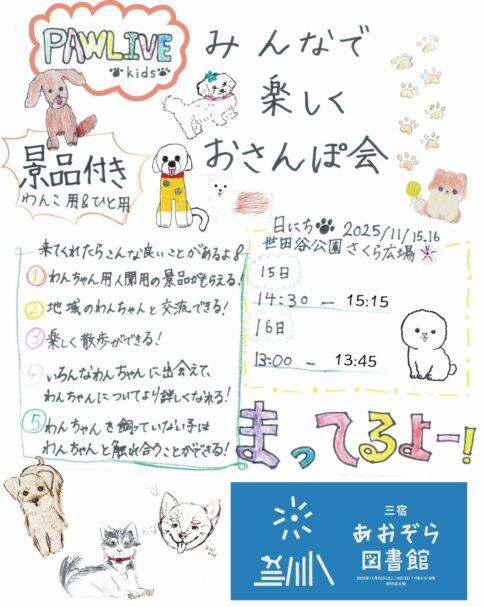 PAWLIVE
kids
みんなで
楽しく
おさんぽ会
景品付き
わんこ用&ひと用
日にち 2025/11/15.16
世田谷公園 さくら広場
15日
14:30 — 15:15
16日
13:00 — 13:45
来てくれたらこんな良いことがあるよ!
① わんちゃん用人間用の景品がもらえる!
② 地域のわんちゃんと交流できる!
③ 楽しく散歩ができる!
④ いろんなわんちゃんに出会えて、
わんちゃんについてより詳しくなれる!
⑤ わんちゃんを飼っていない子は
わんちゃんと触れ合うことができる!
まってるよー!
三宿
あおぞら
図書館